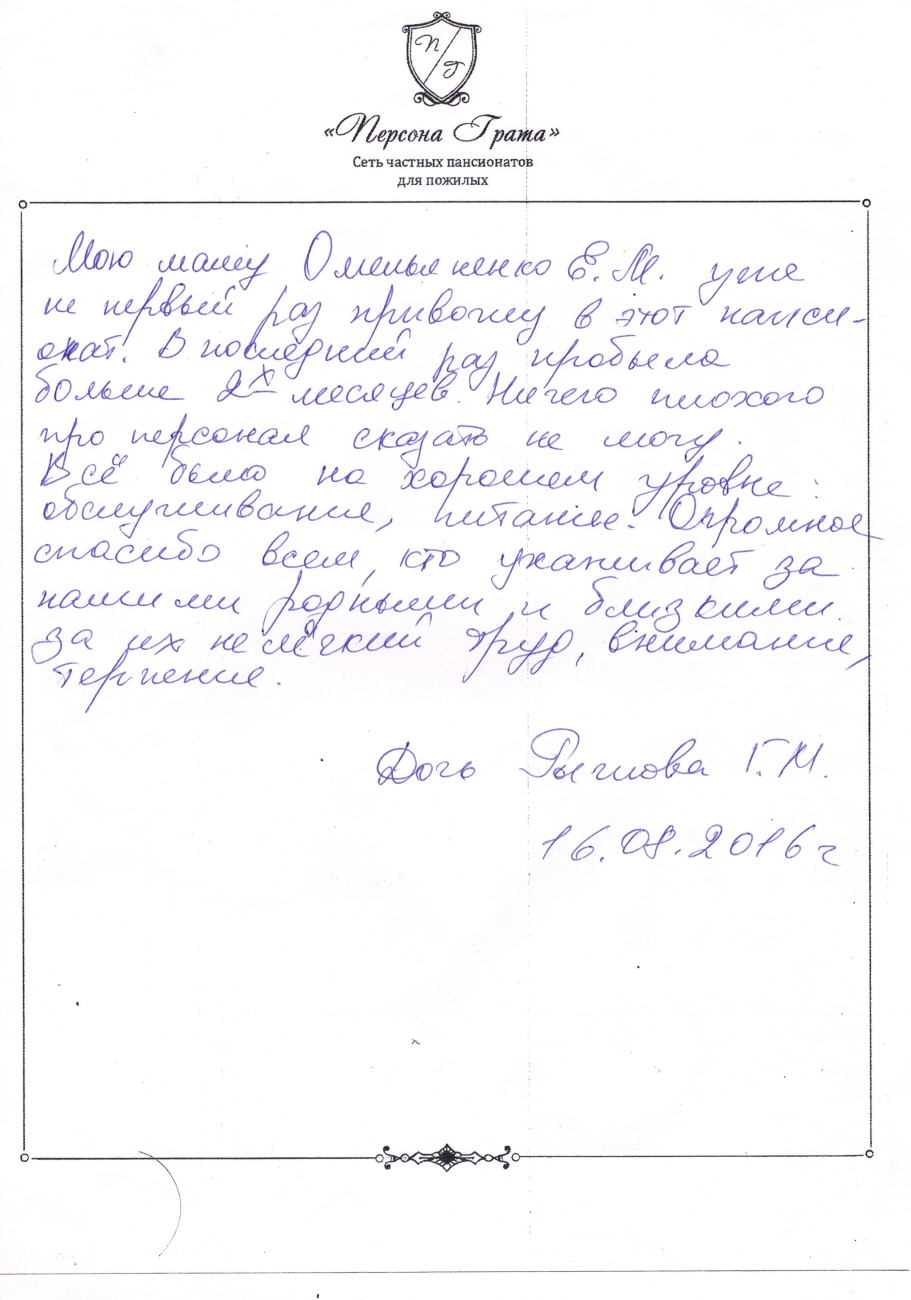 П/Г
«Персона Грата»
Сеть частных пансионатов
для пожилых
Мою маму Омельяненко Е.М. уже
не первый раз привожу в этот панси-
онат. В последний раз пробыла
больше 2х месяцев. Ничего плохого
про персонал сказать не могу.
Всё было на хорошем уровне:
обслуживание, питание. Огромное
спасибо всем, кто ухаживает за
нашими родными и близкими
за их нелёгкий труд, внимание,
терпение.
Дочь Г.М.
16.08.2016г